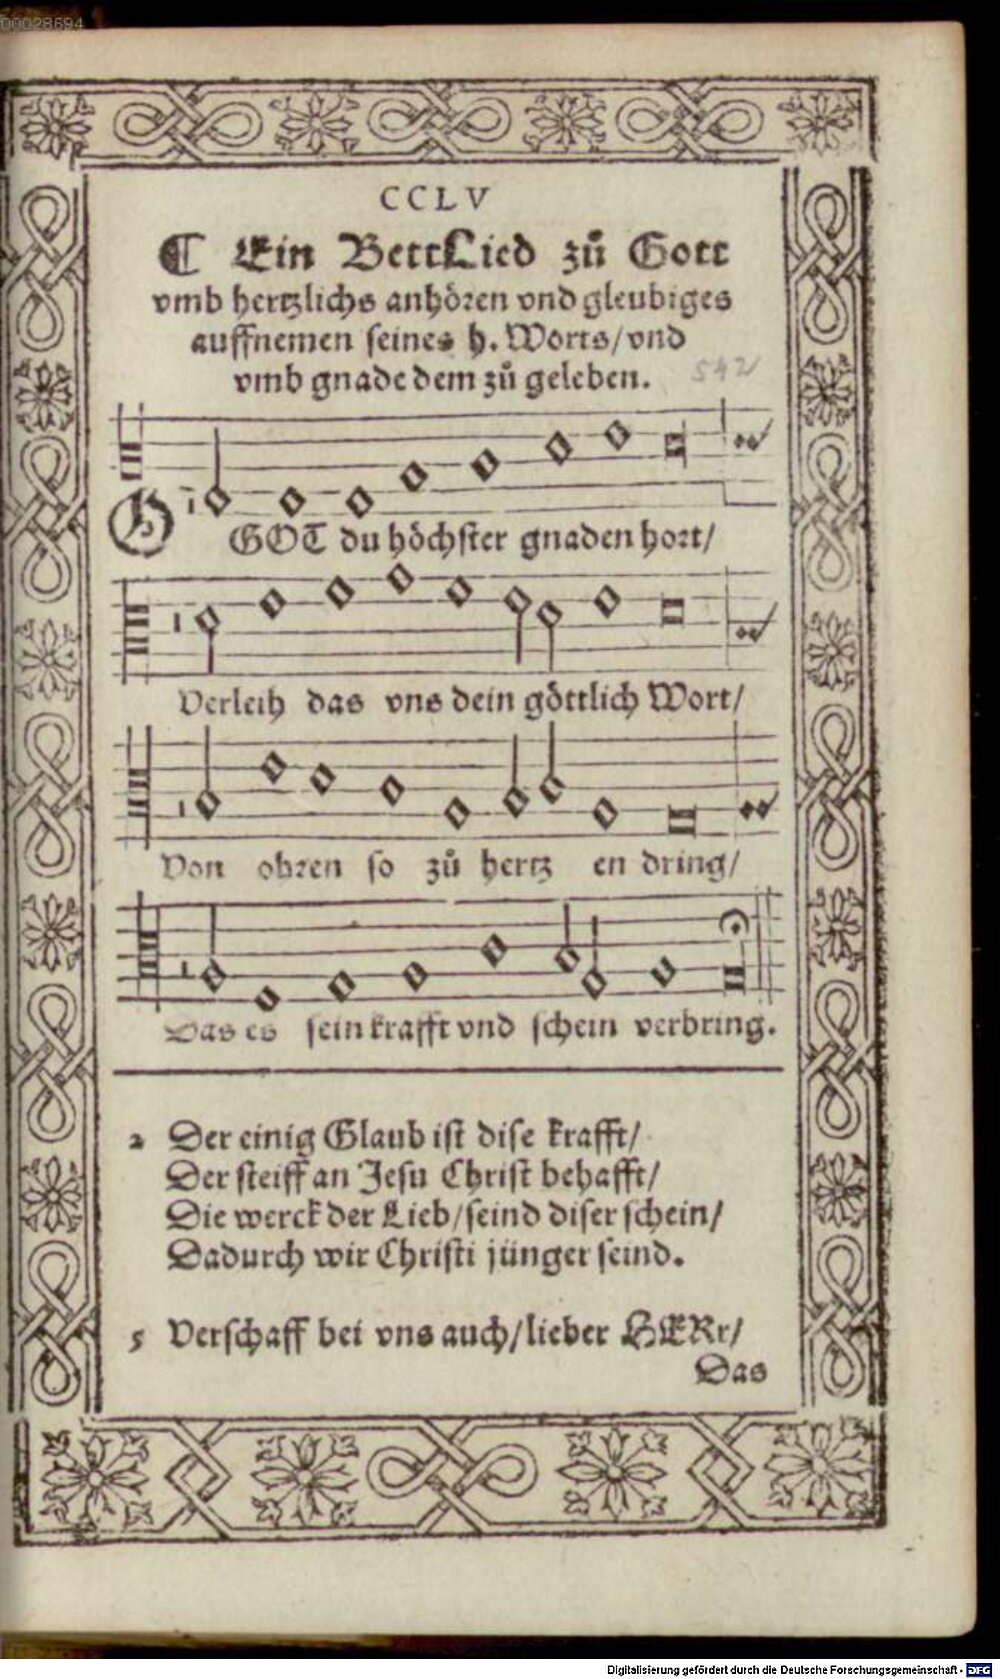 00028694
CCLV
¶ Ein BettLied zů Gott
vmb hertzlichs anhören vnd gleubiges
auffnemen seines h. Worts/vnd
vmb gnade dem zů geleben.
542
O
GOT du höchster gnaden hort/
Verleih das vns dein göttlich Wort/
Von ohren so zů hertz en dring/
Das es sein krafft vnd schein verbring.
2 Der einig Glaub ist dise krafft/
Der steiff an Jesu Christ behafft/
Die werck der Lieb/seind diser schein/
Dadurch wir Christi jünger seind.
3 Verschaff bei vns auch/lieber HERr/
Das
Digitalisierung gefördert durch die Deutsche Forschungsgemeinschaft - DFG